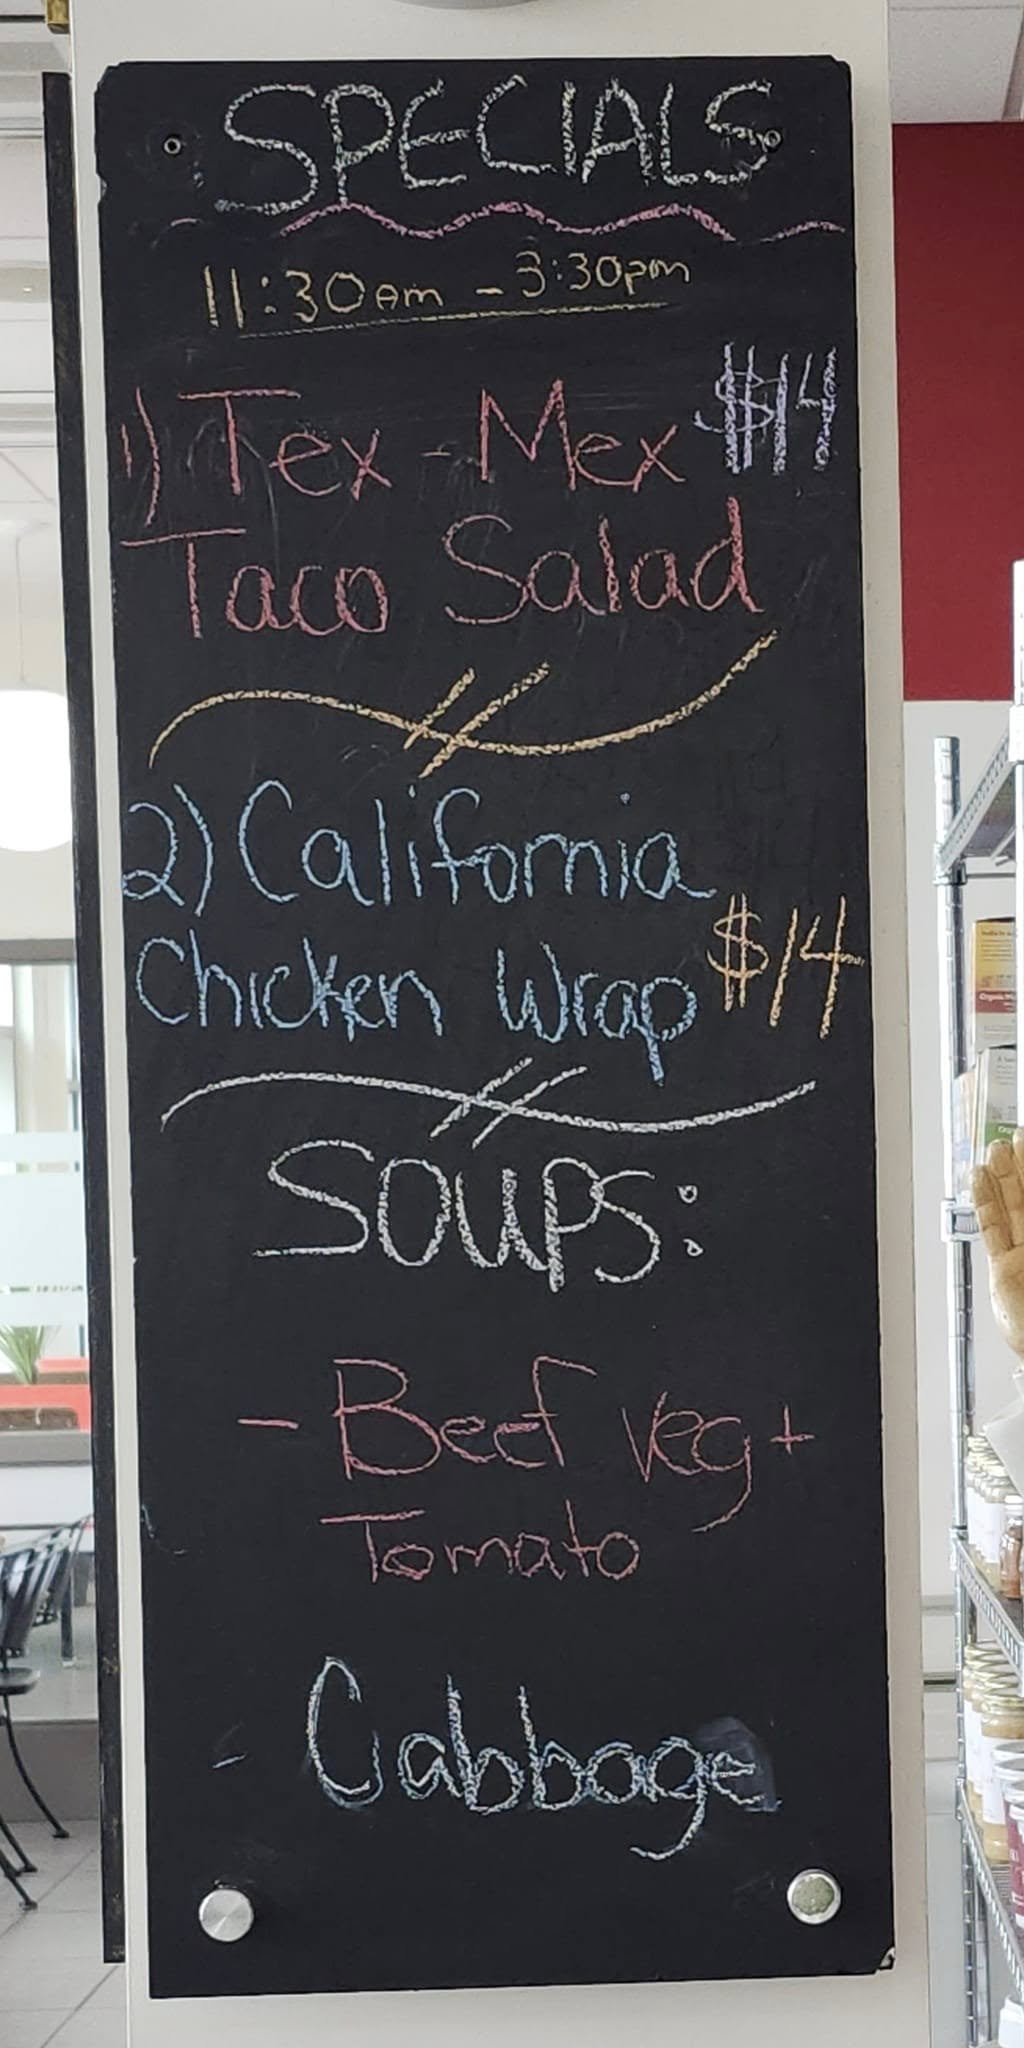 SPECIALS
11:30am - 3:30pm
1) Tex-Mex $14
Taco Salad
2) California
Chicken Wrap $14
SOUPS:
- Beef veg +
Tomato
- Cabbage